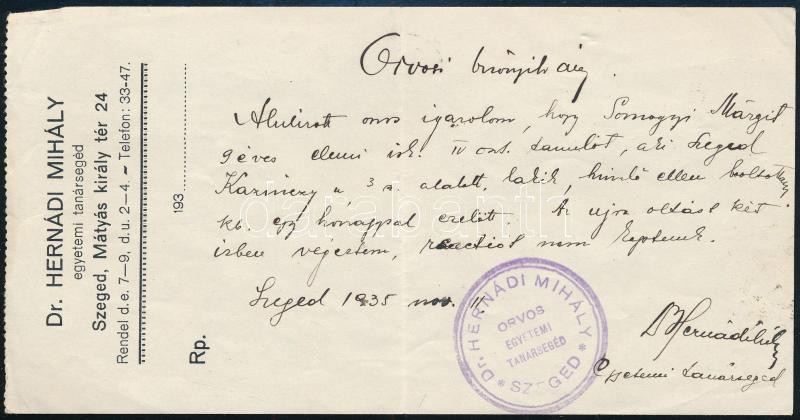 Dr. HERNÁDI MIHÁLY
egyetemi tanársegéd
Szeged, Mátyás király tér 24
Rendel d. e. 7–9, d. u. 2–4. – Telefon: 33-47.
193
Rp.
Orvosi bizonyítvány.
Alulírott orvos igazolom, hogy Somogyi Márgit
9 éves elemi isk. IV oszt. tanulót, aki Szeged
Kazinczy u 3 sz. alatt lakik, himlő ellen beoltottam
kb. egy hónappal ezelőtt. Az ujra oltást két
ízben végeztem, reactiót nem kaptunk.
Szeged 1935 nov. 11.
Dr. HERNÁDI MIHÁLY
ORVOS
EGYETEMI
TANÁRSEGÉD
* SZEGED *
Dr Hernádi Mihály
egyetemi tanársegéd
darabanth